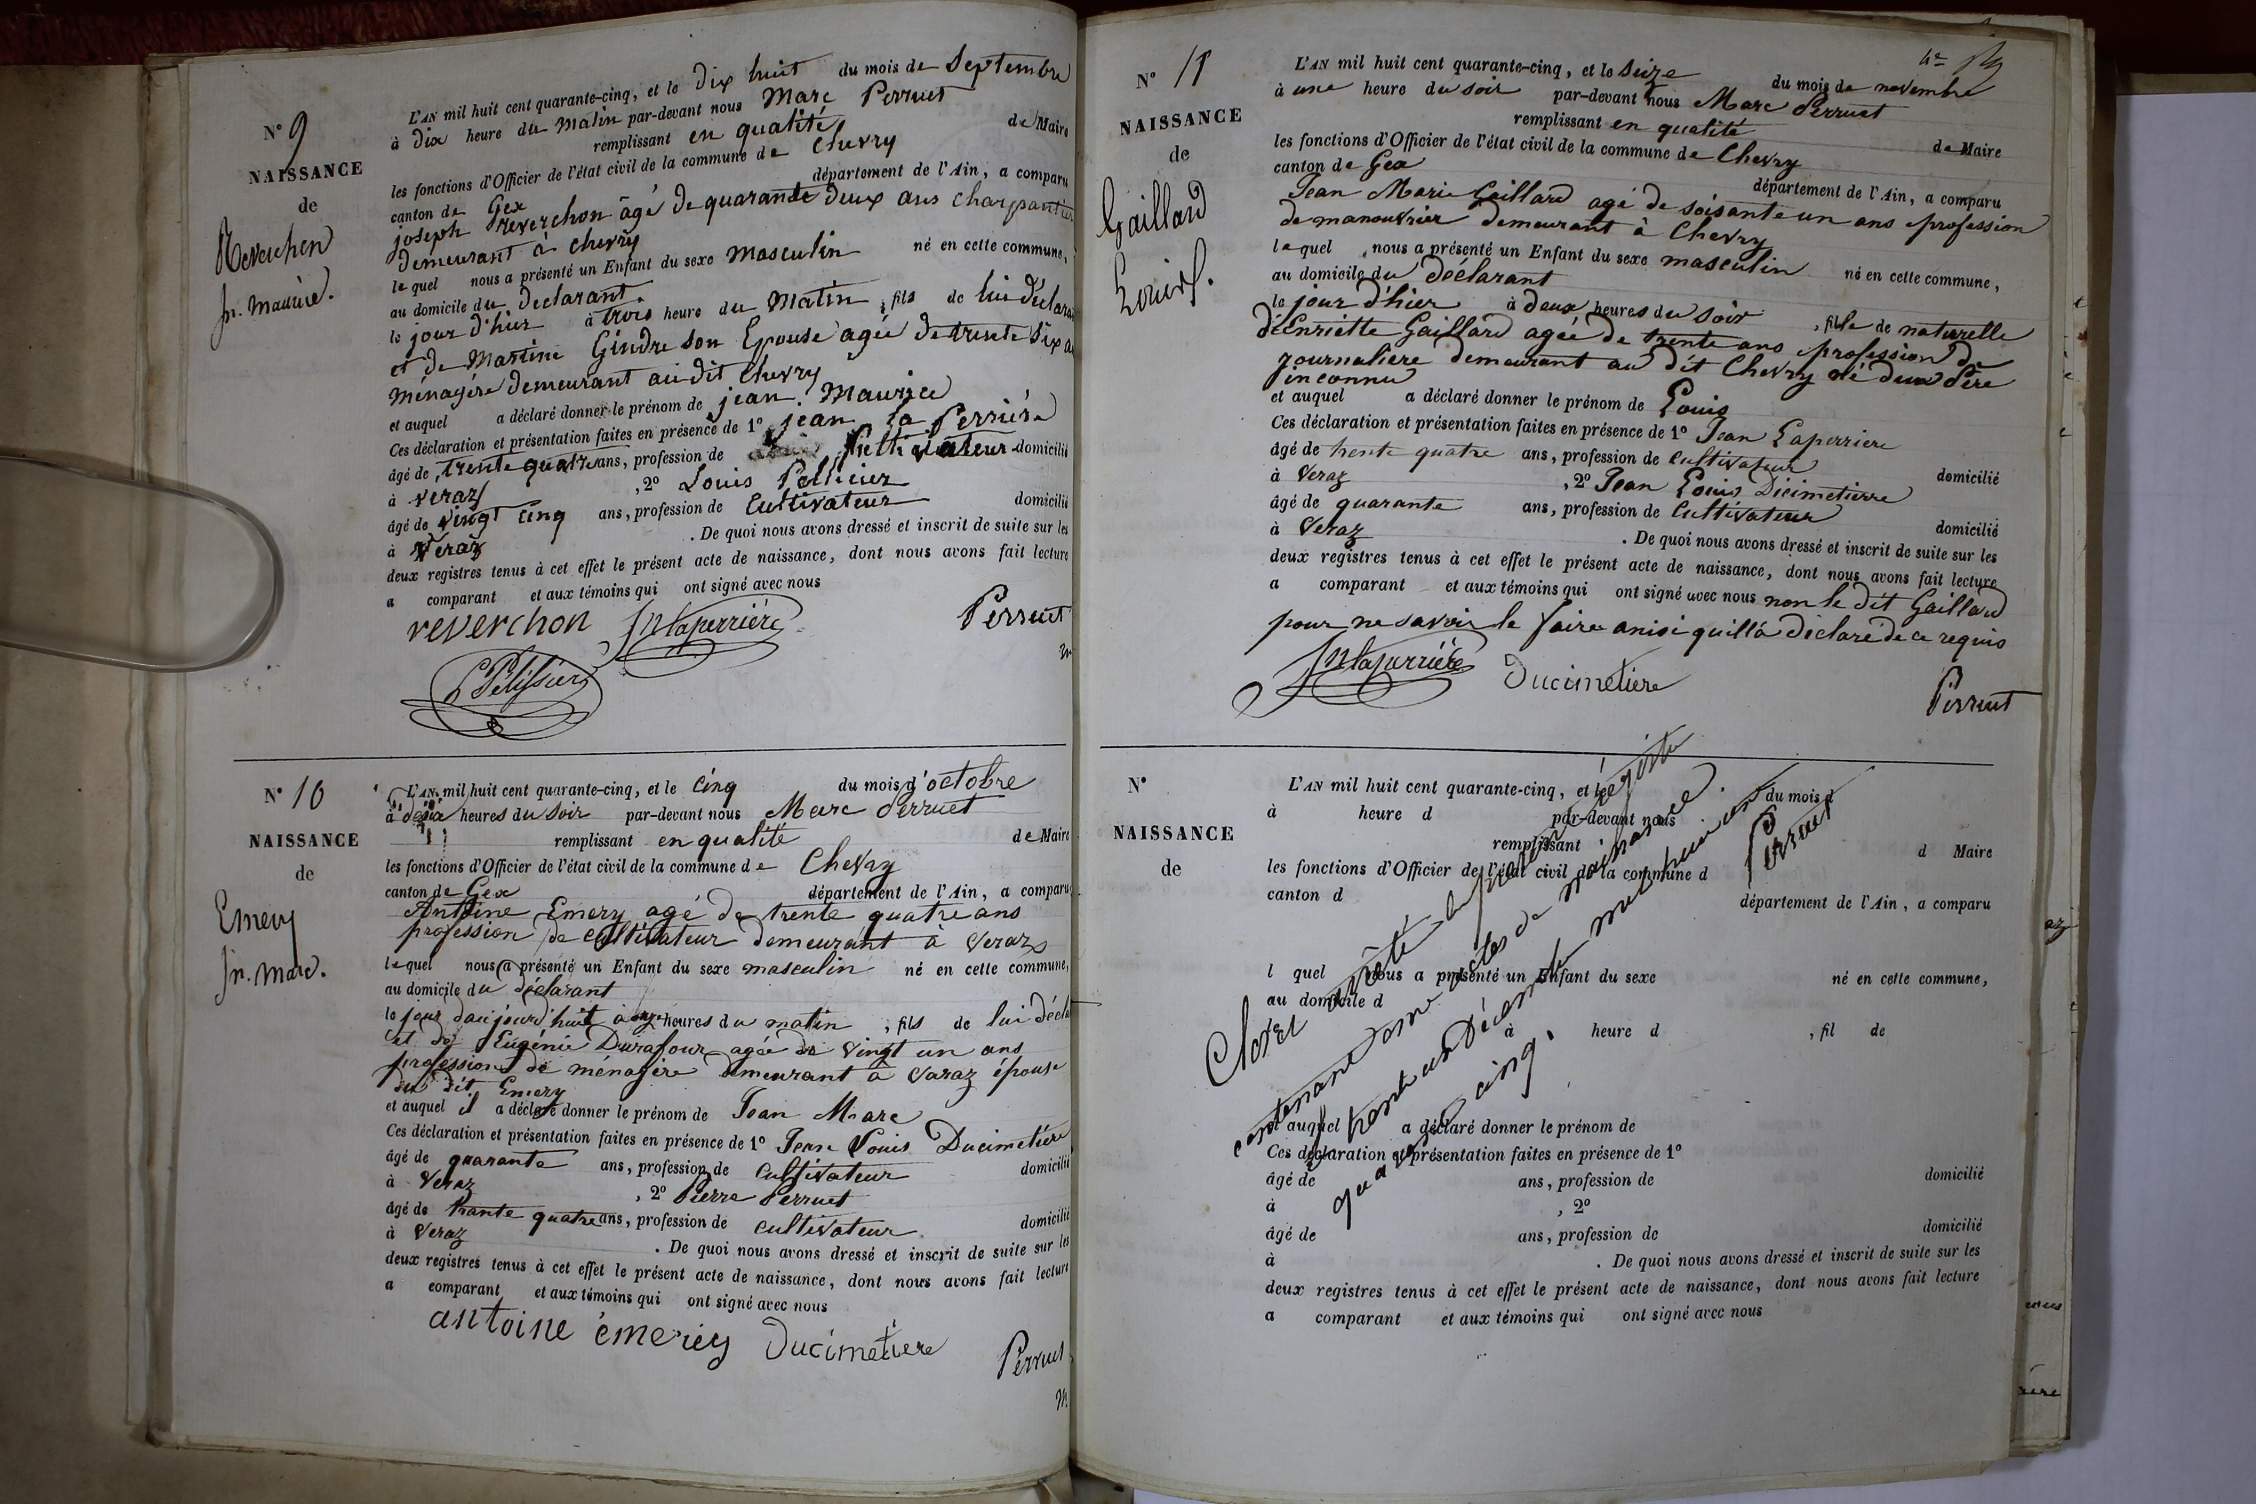 N° 9
NAISSANCE
de
Reverchon
jn. maurice.
L'AN mil huit cent quarante-cinq, et le dix huit du mois de Septembre
à dix heure du matin par-devant nous Marc Perruet
remplissant en qualité de Maire
les fonctions d'Officier de l'état civil de la commune de Chevry
canton de Gex département de l'Ain, a comparu
joseph reverchon âgé de quarante deux ans charpantier
demeurant à chevry
lequel nous a présenté un Enfant du sexe masculin né en cette commune,
au domicile du déclarant.
le jour d'hier à trois heure du matin, fils de lui déclara
et de Martine Gindre son Epouse agée de trente six a
ménagére demeurant au dit Chevry
et auquel a déclaré donner le prénom de jean Maurice
Ces déclaration et présentation faites en présence de 1° jean la Perriére
âgé de trente quatre ans, profession de Cultivateur domicilié
à veraz, 2° Louis Pellicier
âgé de vingt cinq ans, profession de Cultivateur domicilié
à Veraz. De quoi nous avons dressé et inscrit de suite sur les
deux registres tenus à cet effet le présent acte de naissance, dont nous avons fait lecture
a comparant et aux témoins qui ont signé avec nous
reverchon Jn laperriére Perruet
m
Pelissier
N° 10
NAISSANCE
de
Emery
Jn. Marc.
L'AN mil huit cent quarante-cinq, et le cinq du mois d'octobre
à heures du soir par-devant nous Marc Perruet
remplissant en qualité de Maire
les fonctions d'Officier de l'état civil de la commune de Chevry
canton de Gex département de l'Ain, a comparu
Antoine Emery agé de trente quatre ans
profession de cultivateur demeurant à Veraz
lequel nous a présenté un Enfant du sexe masculin né en cette commune,
au domicile du déclarant
le jour d'aujourd'huit à onze heures du matin, fils de lui décla
et de Eugénie Durafour agée de vingt un ans
profession de ménagére demeurant à Varaz épouse
du dit Emery
et auquel il a déclaré donner le prénom de Jean Marc
Ces déclaration et présentation faites en présence de 1° Jean Louis Ducimetiére
âgé de quarante ans, profession de cultivateur domicilié
à Veraz, 2° Pierre Perruet
âgé de trante quatre ans, profession de cultivateur domicilié
à Veraz. De quoi nous avons dressé et inscrit de suite sur les
deux registres tenus à cet effet le présent acte de naissance, dont nous avons fait lecture
a comparant et aux témoins qui ont signé avec nous
antoine émeriey Ducimetiere Perruet
m
N° 11
NAISSANCE
de
Gaillard
Louis.
L'AN mil huit cent quarante-cinq, et le seize du mois de novembre
à une heure du soir par-devant nous Marc Perruet
remplissant en qualité de Maire
les fonctions d'Officier de l'état civil de la commune de Chevry
canton de Gex département de l'Ain, a comparu
Jean Marie Gaillard agé de soisante un ans profession
de manouvrier demeurant à Chevry
lequel nous a présenté un Enfant du sexe masculin né en cette commune,
au domicile du déclarant
le jour d'hier à deux heures du soir, fils de naturelle
d'Enriette Gaillard agée de trente ans profession de
journaliere demeurant au dit Chevry né d'un Père
inconnu
et auquel a déclaré donner le prénom de Louis
Ces déclaration et présentation faites en présence de 1° Jean Laperriere
âgé de trente quatre ans, profession de cultivateur domicilié
à Veraz, 2° Jean Louis Dicimetierre
âgé de quarante ans, profession de Cultivateur domicilié
à Veraz. De quoi nous avons dressé et inscrit de suite sur les
deux registres tenus à cet effet le présent acte de naissance, dont nous avons fait lecture
a comparant et aux témoins qui ont signé avec nous non le dit Gaillard
pour ne savoir le faire anisi quilla déclaré de ce requis
Jn laperriére Ducimetiere
Perruet
N°
NAISSANCE
de
L'AN mil huit cent quarante-cinq, et le du mois d
à heure d par-devant nous
remplissant d Maire
les fonctions d'Officier de l'état civil de la commune d
canton d département de l'Ain, a comparu
l quel nous a présenté un Enfant du sexe né en cette commune,
au domicile d
à heure d, fil de
et auquel a déclaré donner le prénom de
Ces déclaration et présentation faites en présence de 1°
âgé de ans, profession de domicilié
à, 2°
âgé de ans, profession de domicilié
à. De quoi nous avons dressé et inscrit de suite sur les
deux registres tenus à cet effet le présent acte de naissance, dont nous avons fait lecture
a comparant et aux témoins qui ont signé avec nous
Clos et arrêté le présent registre
contenant onze actes de naissance.
le trente un Décembre mil huit cent
quarante cinq.
Perruet